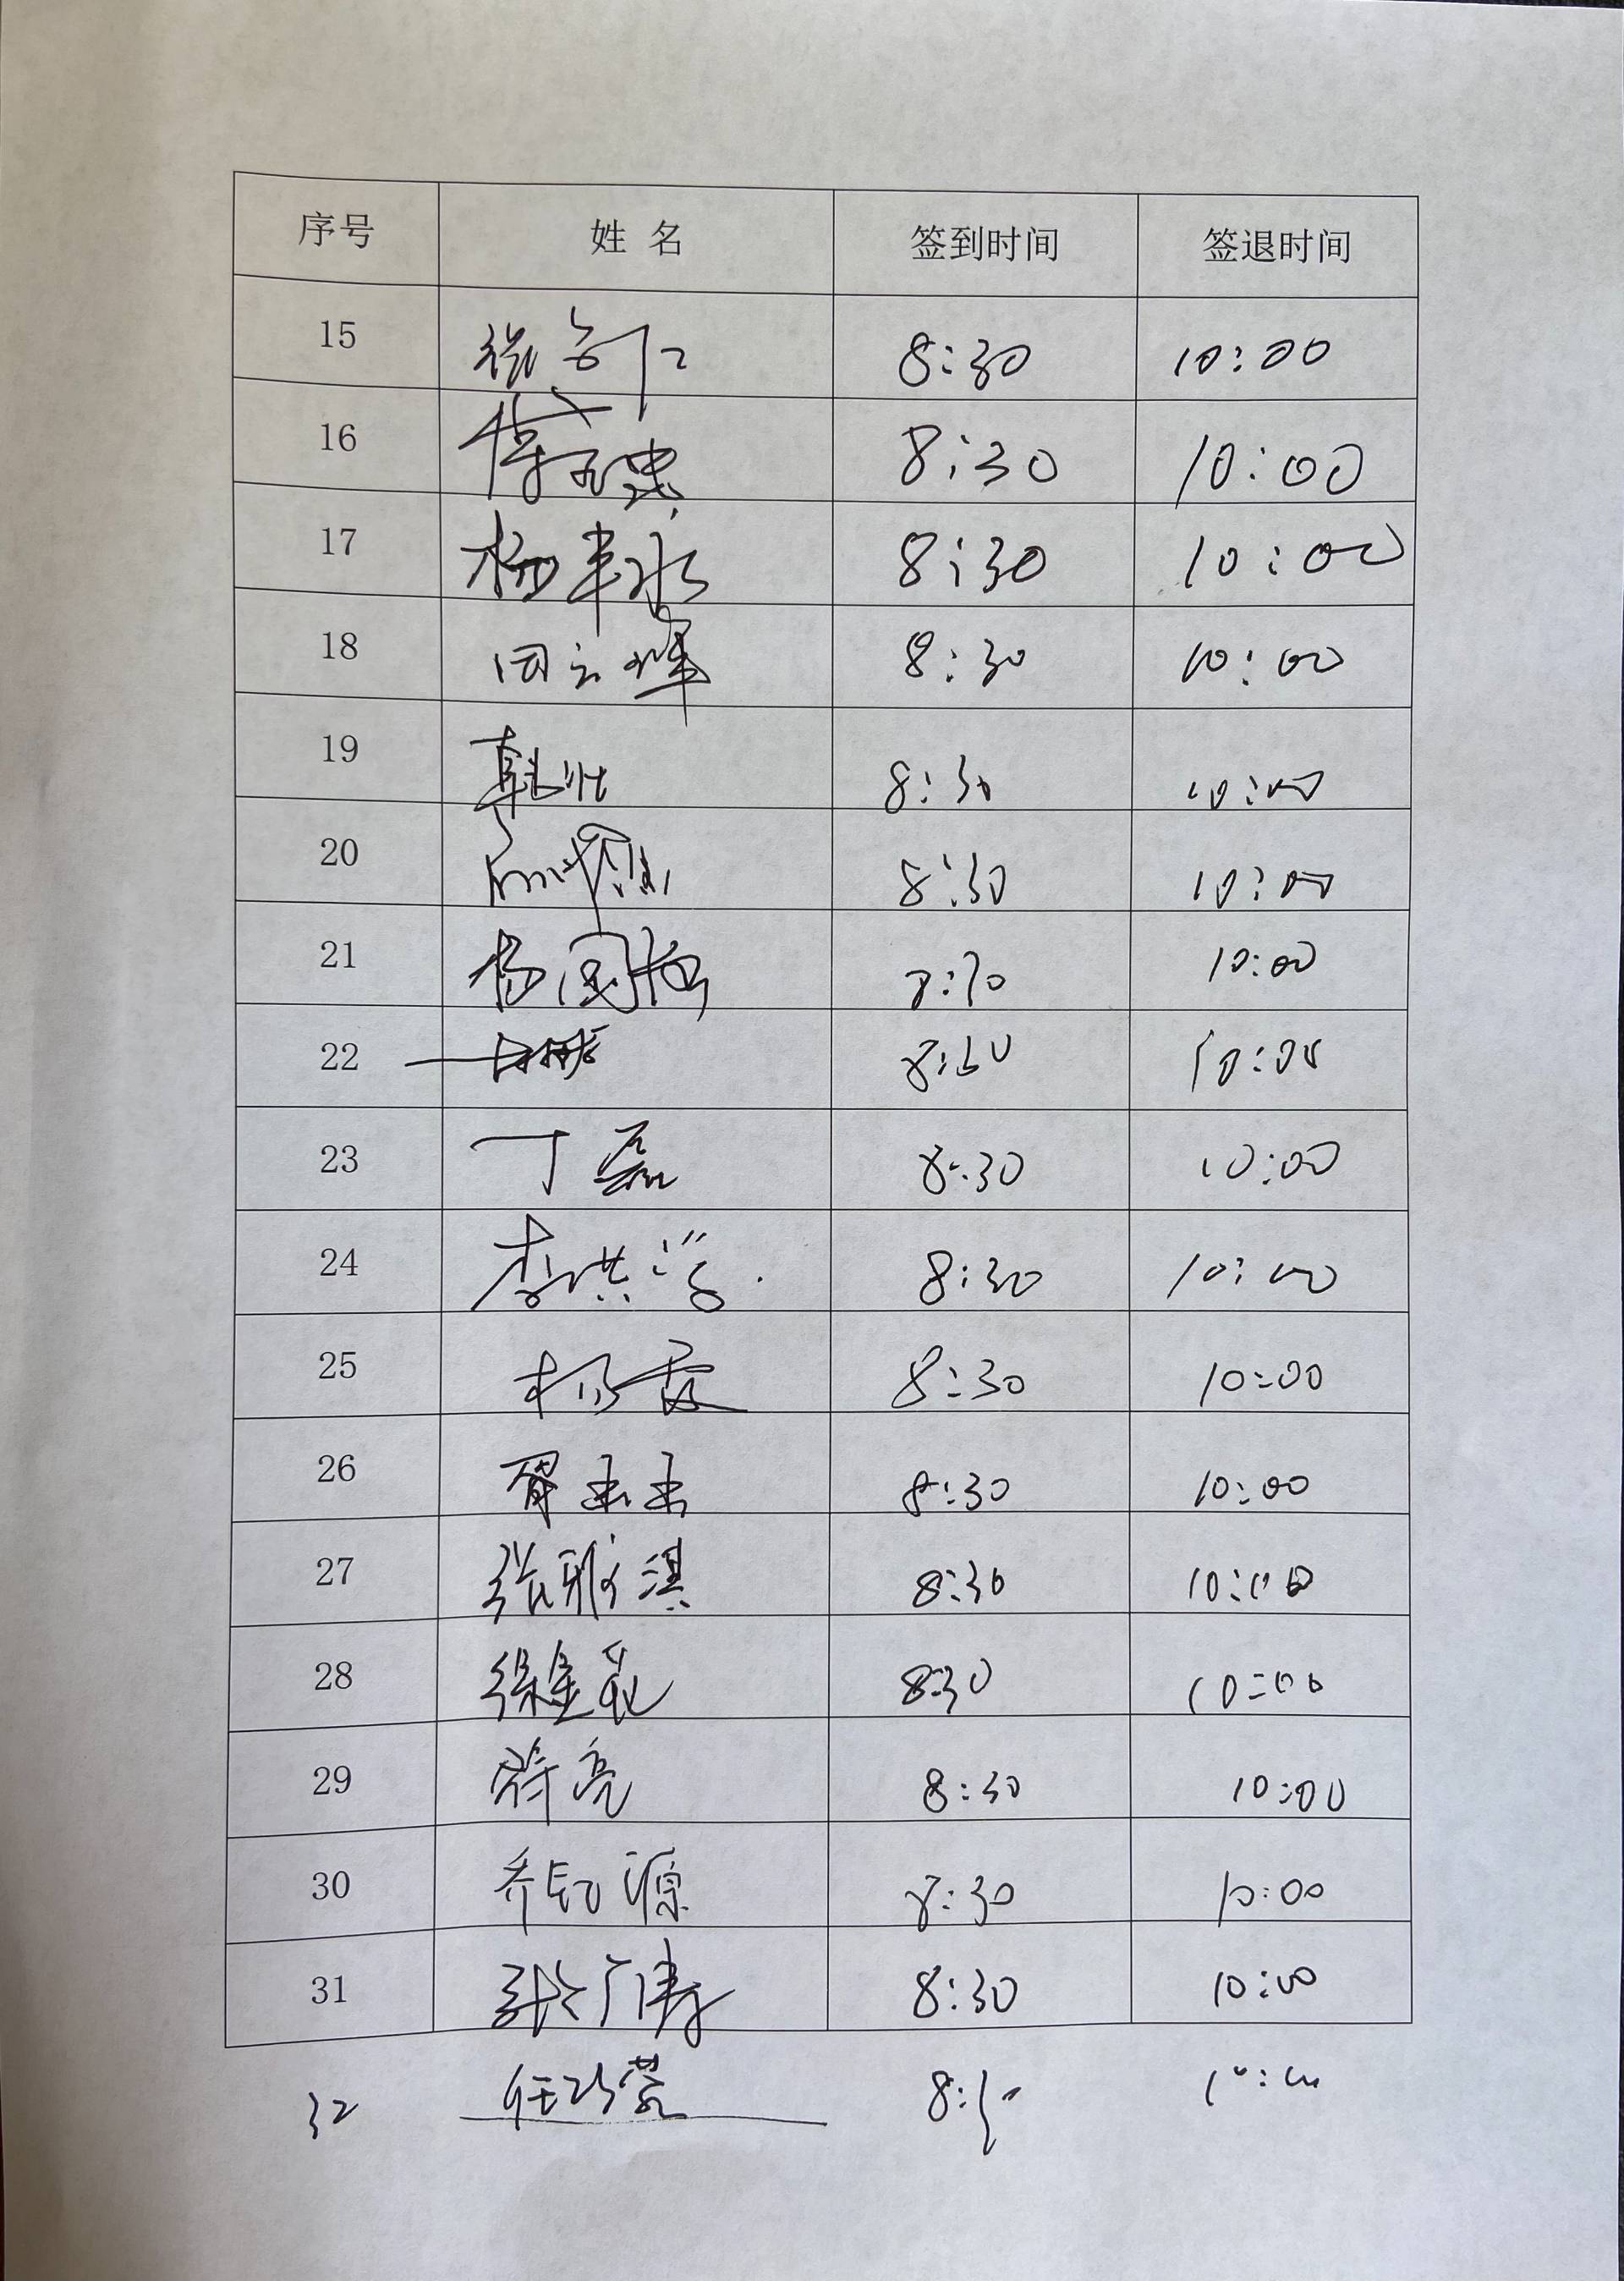 序号 姓 名 签到时间 签退时间
15 8:30 10:00
16 8:30 10:00
17 杨丰冰 8:30 10:00
18 田云峰 8:30 10:00
19 韩壮 8:30 10:00
20 8:30 10:00
21 杨国栋 8:30 10:00
22 8:30 10:00
23 丁磊 8:30 10:00
24 李洪学 8:30 10:00
25 杨霞 8:30 10:00
26 8:30 10:00
27 张雅淇 8:30 10:00
28 徐金花 8:30 10:00
29 蒋亮 8:30 10:00
30 乔钰源 8:30 10:00
31 张广涛 8:30 10:00
32 8:30 10:00